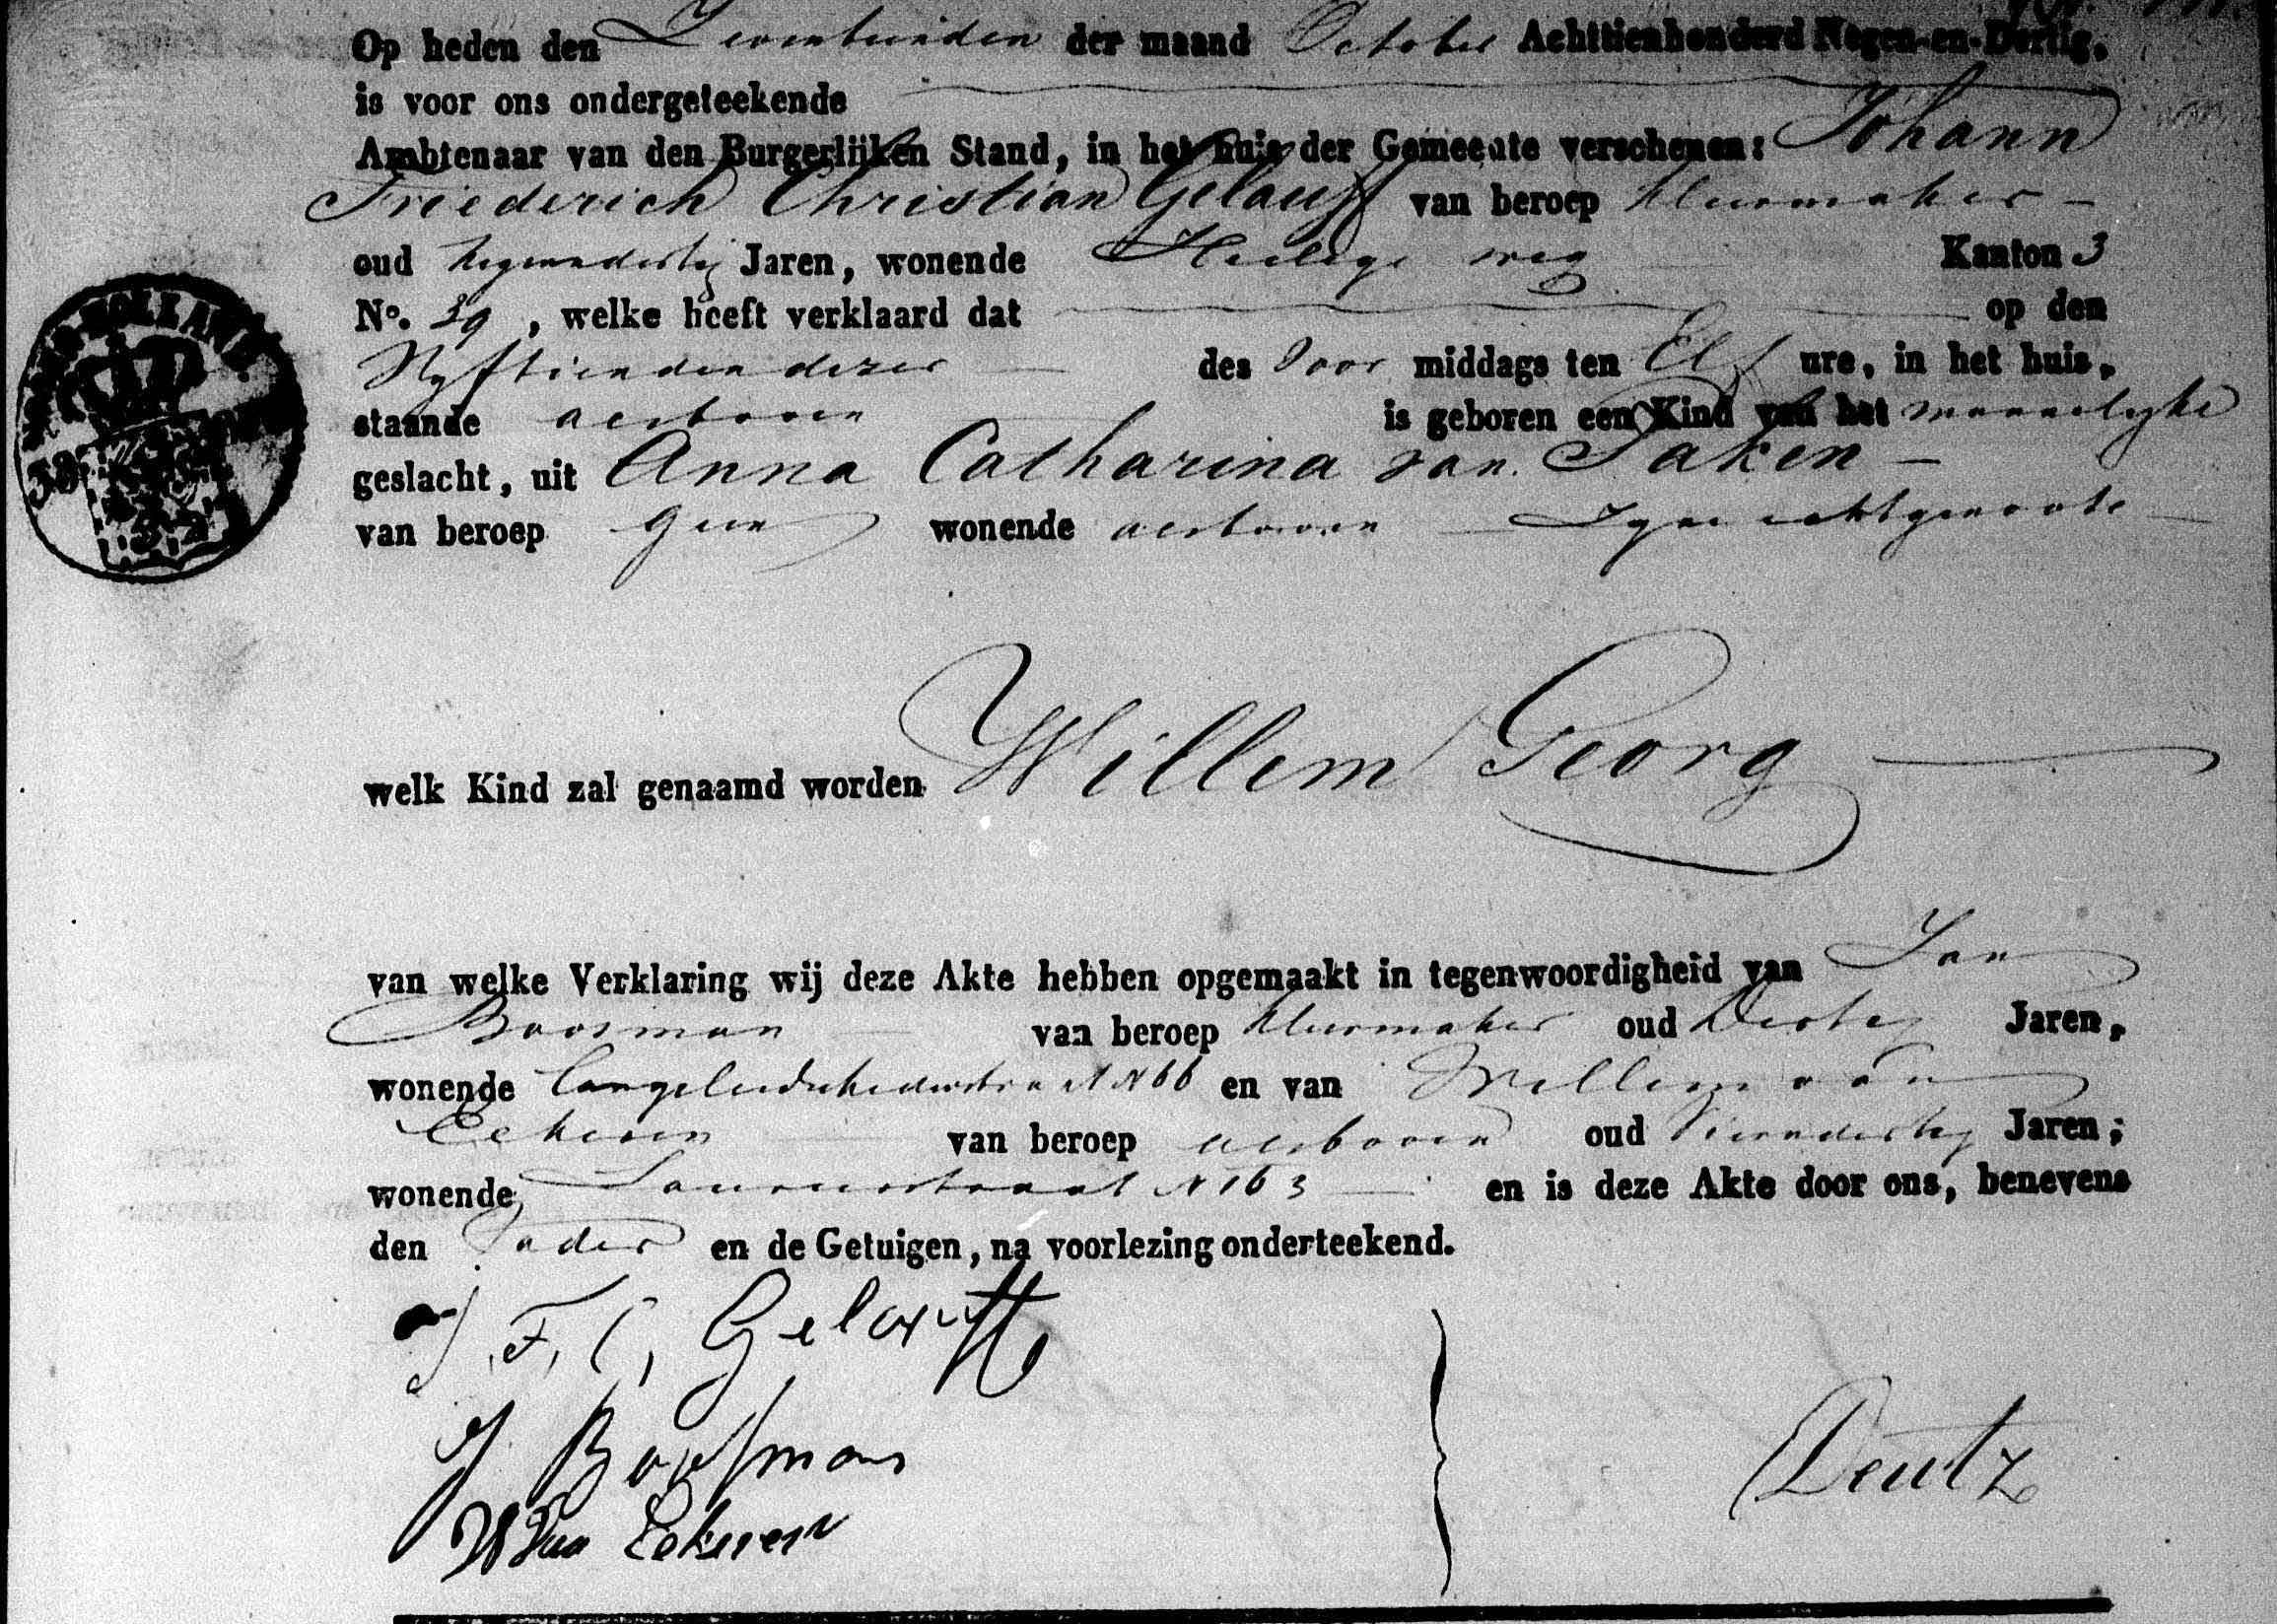 Op heden den Zeventienden der maand October Achttienhonderd Negen-en-Dertig,
is voor ons ondergeteekende
Ambtenaar van den Burgerlijken Stand, in het huis der Gemeente verschenen: Johann
Friederich Christian Gelauff van beroep kleermaker
oud negenendertig Jaren, wonende Heilige weg Kanton 3
No. 39, welke heeft verklaard dat op den
Vyftienden dezer des voor middags ten Elf ure, in het huis,
staande alsboven is geboren een Kind van het mannelyke
geslacht, uit Anna Catharina van Saken
van beroep geen wonende alsboven Zyne echtgenoote
welk Kind zal genaamd worden Willem Georg
van welke Verklaring wij deze Akte hebben opgemaakt in tegenwoordigheid van Jan
Boosman van beroep kleermaker oud Dertig Jaren,
wonende Langeleidschedwarstraat N 66 en van Willem van
Eekeren van beroep alsboven oud Vierendertig Jaren;
wonende Laurierstraat N 163 en is deze Akte door ons, benevens
den Vader en de Getuigen, na voorlezing onderteekend.
J. F. C. Gelauff
J. Boosman
W Van Eekeren
Deutz